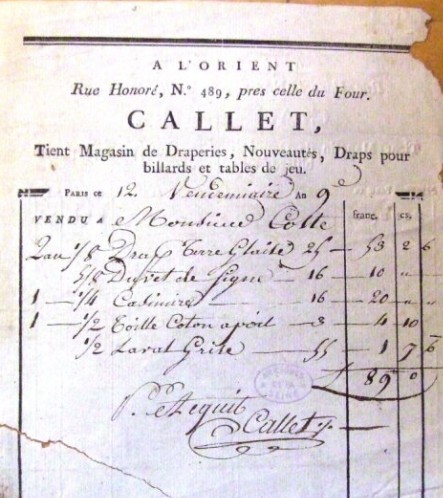 A L'ORIENT
Rue Honoré, N.º 489, pres celle du Four.
CALLET,
Tient Magasin de Draperies, Nouveautés, Draps pour
billards et tables de jeu.
PARIS ce 12. Vendemiaire AN 9e
VENDU A Monsieur Colle franc. cs.
2 au 1/8 Drap Terre Glaise 25 — 53 2 6
5/8 Duvet de Signe — 16 — 10 " "
1 — 1/4 Casimire — 16 — 20 " "
1 — 1/2 Toille Coton apoil — 3 — 4 10
1/2 Laval Grise — 55 — 1 7 6
89 0
P. Acquit
Callet